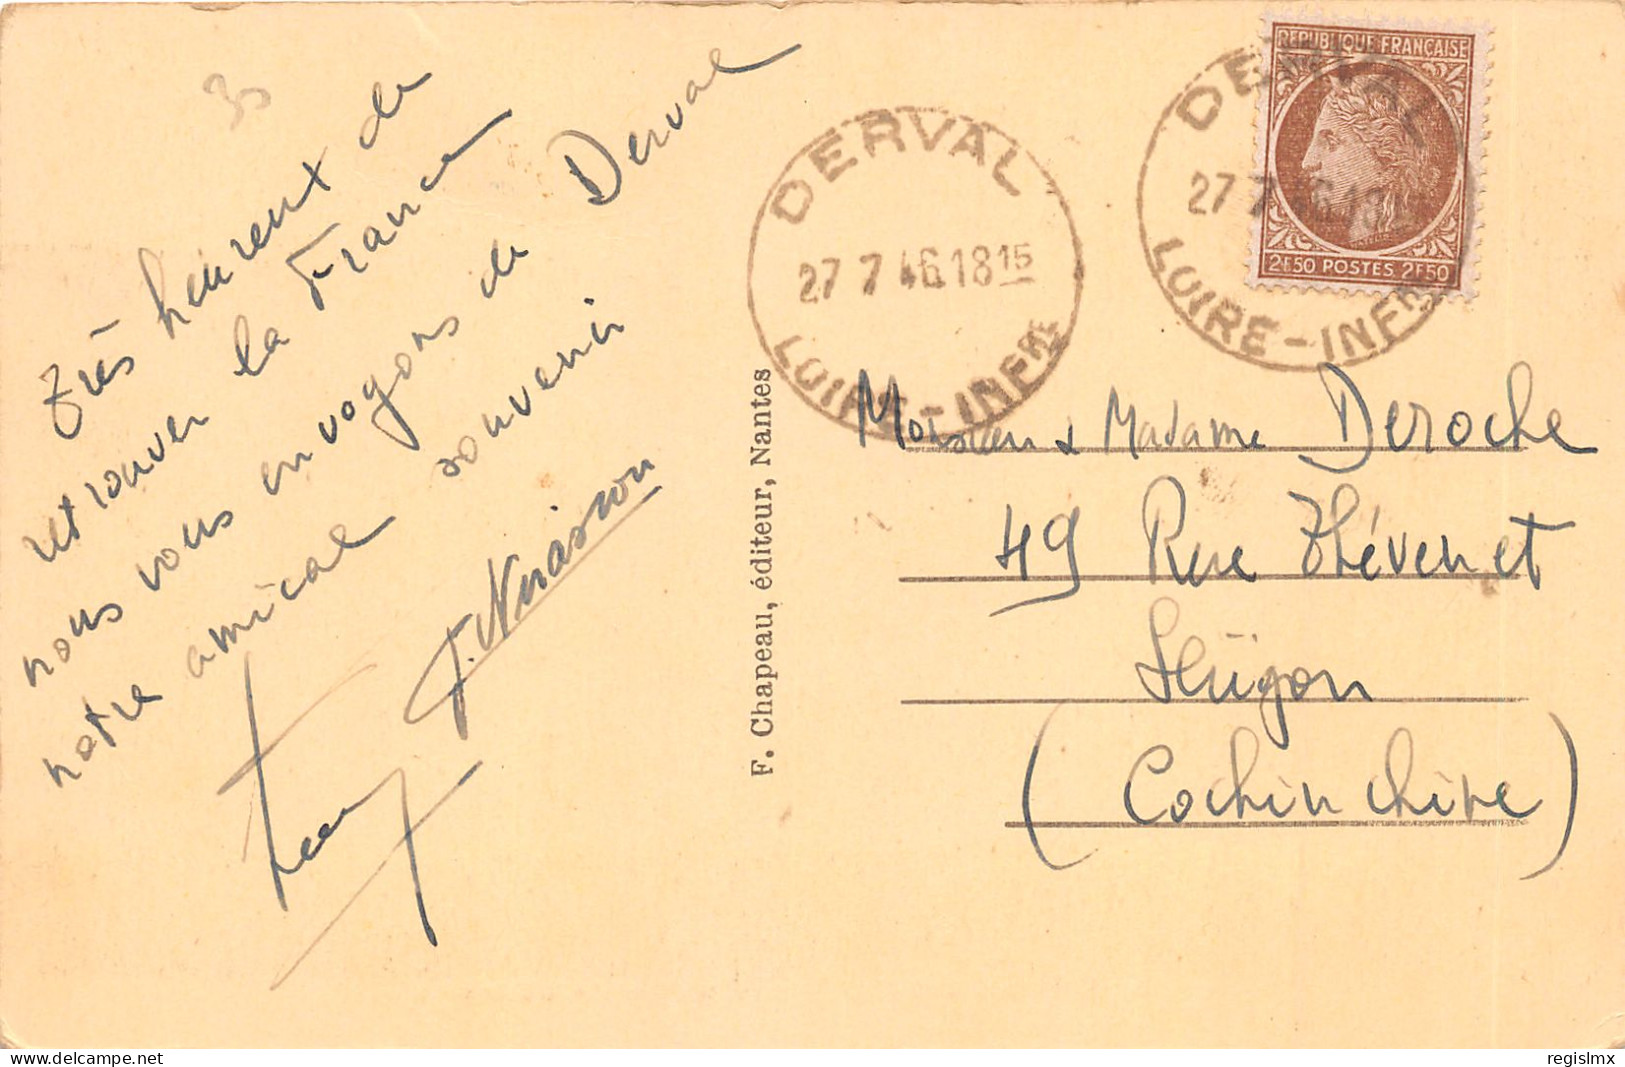 35
Très heureux de
retrouver la France
nous vous envoyons de Derval
notre amical souvenir
DERVAL
27 7 46 18 15
LOIRE-INFRE
DERVAL
27 7 46 18
LOIRE-INFRE
REPUBLIQUE FRANÇAISE
2F50 POSTES 2F50
F. Chapeau, éditeur, Nantes
Monsieur & Madame Deroche
49 Rue Thévenet
Saïgon
(Cochinchine)
Delcampe.net
regislmx